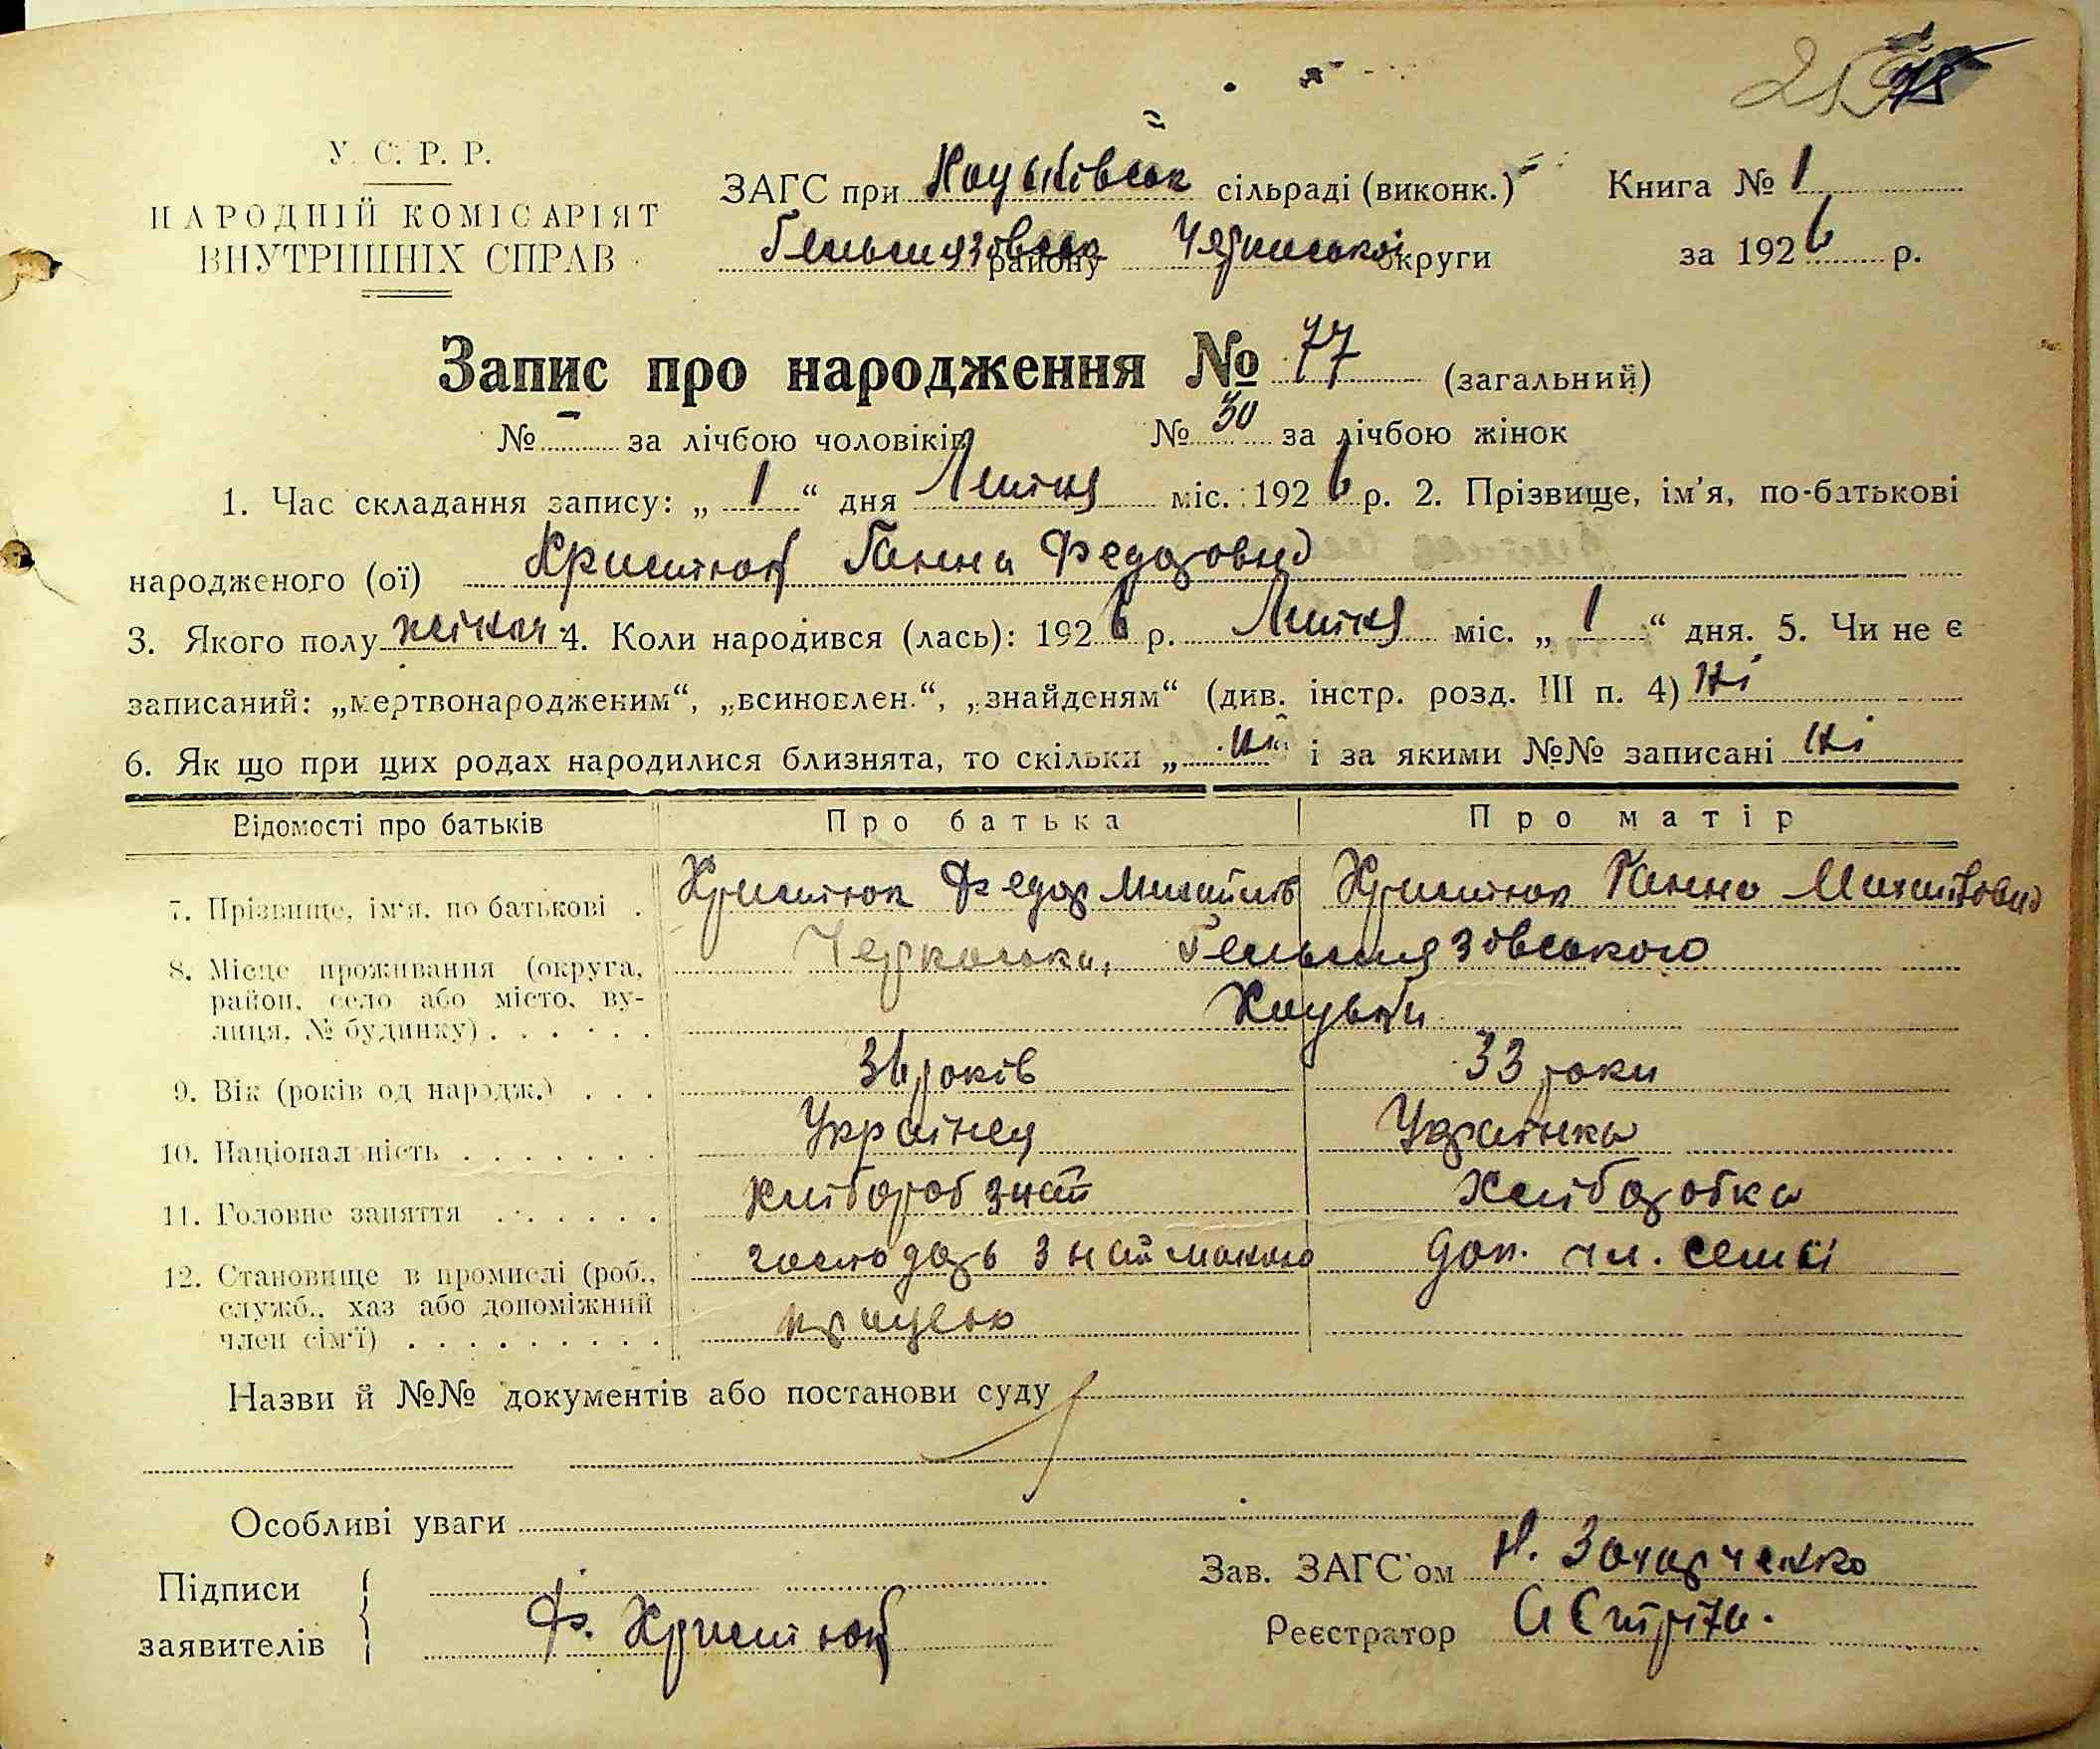 У. С. Р. Р.
НАРОДНІЙ КОМІСАРІЯТ
ВНУТРІШНІХ СПРАВ
ЗАГС при Хоцьківськ сільраді (виконк.) Книга № 1
Гельмязівськ району Черкаської округи за 1926 р.
Запис про народження № 77 (загальний)
№ – за лічбою чоловіків № 30 за лічбою жінок
1. Час складання запису: „ 1 “ дня Липня міс. 1926 р. 2. Прізвище, ім’я, по-батькові
народженого (ої) Христюк Ганна Федоровна
3. Якого полу жіноч 4. Коли народився (лась): 1926 р. Липня міс. „ 1 “ дня. 5. Чи не є
записаний: „мертвонародженим“, „всиновлен.“, „знайденям“ (див. інстр. розд. III п. 4) Ні
6. Як що при цих родах народилися близнята, то скільки „ ні “ і за якими №№ записані Ні
Відомості про батьків Про батька Про матір
7. Прізвище, ім’я, по батькові . Христюк Федор Михайлов Христюк Ганна Михайловна
8. Місце проживання (округа, Черкаська, Гельмязівського
район, село або місто, ву-
лиця, № будинку) . . . . . . Хоцьки
9. Вік (років од народж.) . . . 36 років 33 роки
10. Національність . . . . . . . Українец Українка
11. Головне заняття . . . . . . Хлібороб з най Хліборобка
12. Становище в промислі (роб., господарь з найманою доп. чл. семїі
служб., хаз або допоміжний
член сім’ї) . . . . . . . . . працею
Назви й №№ документів або постанови суду
Особливі уваги
Підписи
заявителів Ф. Христюк
Зав. ЗАГС’ом Н. Захарченко
Реєстратор